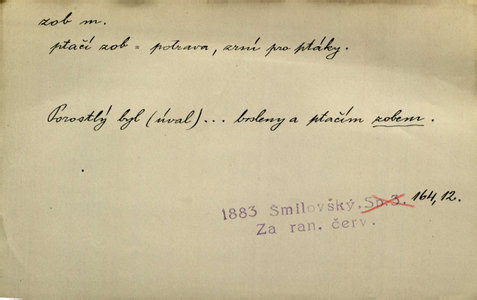 zob m.
ptačí zob = potrava, zrní pro ptáky.
Porostlý byl (úval)... brsleny a ptačím zobem.
1883 Smilovský. Sp.3. 164,12.
Za ran. červ.